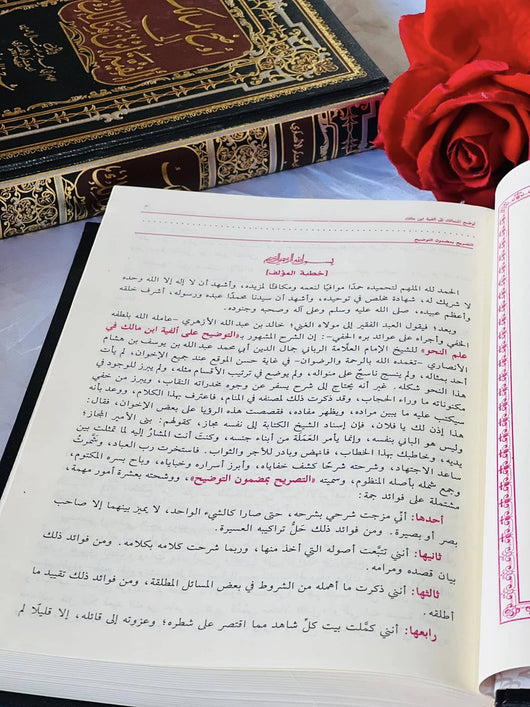 أوضح المسالك
إلى
أوضح المسالك إلى ألفية ابن مالك
التصريح بمضمون التوضيح
بسم الله الرحمن الرحيم
[خطبة المؤلف]
الحمد لله الملهم لتحميده حمدًا موافيًا لنعمه ومكافئًا لمزيده، وأشهد أن لا إله إلا الله وحده
لا شريك له، شهادة مخلص في توحيده، وأشهد أن سيدنا محمدًا عبده ورسوله، أشرف خلقه
وأعظم عبيده، صلى الله عليه وسلم وعلى آله وصحبه وجنوده.
وبعد؛ فيقول العبد الفقير إلى مولاه الغني؛ خالد بن عبد الله الأزهري -عامله الله بلطفه
الخفي وأجراه على عوائد بره الحفي-: إن الشرح المشهور بـ«التوضيح على ألفية ابن مالك في
علم النحو» للشيخ الإمام العلامة الرباني جمال الدين أبي محمد عبد الله بن يوسف بن هشام
الأنصاري -تغمده الله بالرحمة والرضوان- في غاية حسن الموقع عند جميع الإخوان، لم يأت
أحد بمثاله، ولم ينسج ناسج على منواله، ولم يوضع في ترتيب الأقسام مثله، ولم يبرز للوجود في
هذا النحو شكله. غير أنه يحتاج إلى شرح يسفر عن وجوه مخدراته النقاب، ويبرز من خفي
مكنوناته ما وراء الحجاب، وقد ذكرت ذلك لمصنفه في المنام، فاعترف بهذا الكلام، ووعد بأنه
سيكتب عليه ما يبين مراده، ويظهر مفاده، فقصصت هذه الرؤيا على بعض الإخوان، فقال:
هذا إذن لك يا فلان، فإن إسناد الشيخ الكتابة إلى نفسه مجاز، كقولهم: بنى الأمير المجاز؛
وليس هو الباني بنفسه، وإنما يأمر العملة من أبناء جنسه، وكنت أنت المشار إليه لما تمثلت بين
يديه، وخاطبك بهذا الخطاب، فانهض وبادر للأجر والثواب. فاستخرت رب العباد، وشمرت
ساعد الاجتهاد، وشرحته شرحًا كشف خفاياه، وأبرز أسراره وخباياه، وباح بسره المكتوم،
وجمع شمله بأصله المنظوم، وسميته «التصريح بمضمون التوضيح»، ووشحته بعشرة أمور مهمة،
مشتملة على فوائد جمة:
أحدها: أنّي مزجت شرحي بشرحه، حتى صارا كالشيء الواحد، لا يميز بينهما إلا صاحب
بصر أو بصيرة. ومن فوائد ذلك حَلُّ تراكيبه العسيرة.
ثانيها: أنني تتبَّعت أصوله التي أخذ منها، وربما شرحت كلامه بكلامه. ومن فوائد ذلك
بيان قصده ومرامه.
ثالثها: أنني ذكرت ما أهمله من الشروط في بعض المسائل المطلقة، ومن فوائد ذلك تقييد ما
أطلقه.
رابعها: أنني كمَّلت بيت كلّ شاهد مما اقتصر على شطره؛ وعزوته إلى قائله، إلا قليلًا لم